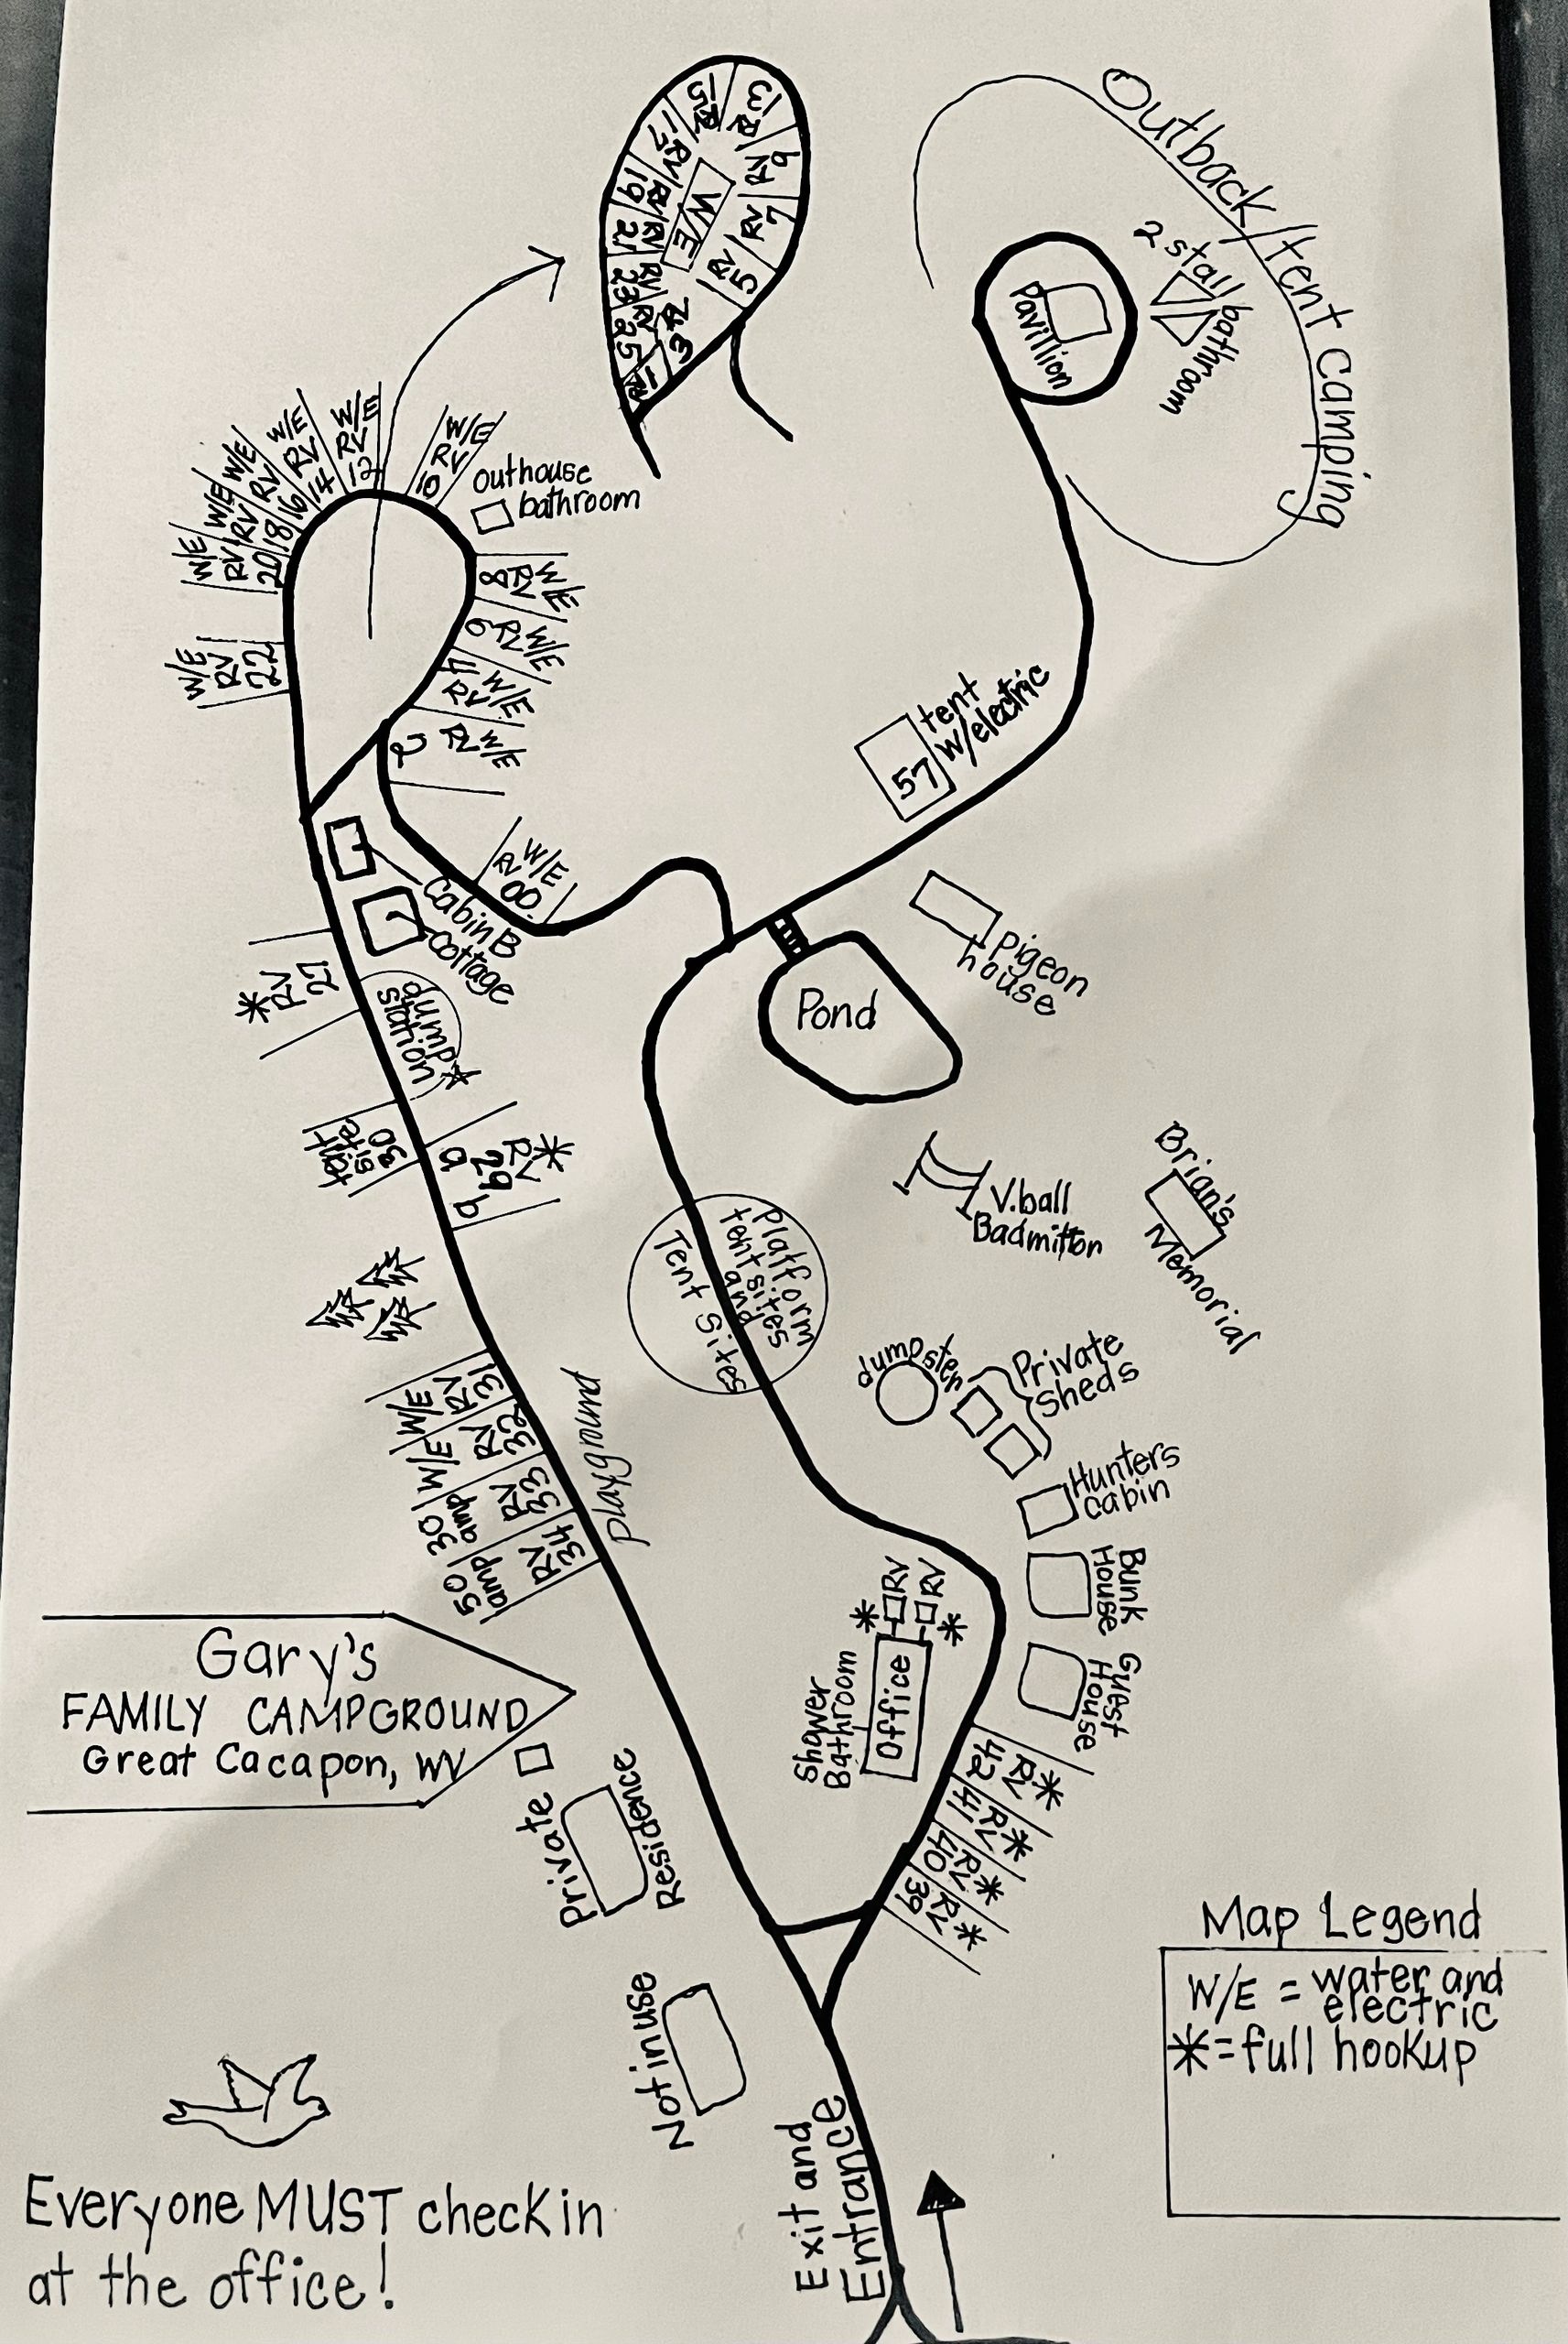 Outback/tent camping
2 stall bathroom
Pavillion
W/E
1 RV
3 RV
5 RV
7 RV
9 RV
13 RV
15 RV
17 RV
19 RV
21 RV
23 RV
25 RV
W/E RV 10
W/E RV 12
W/E RV 14
W/E RV 16
W/E RV 18
W/E RV 20
W/E RV 22
outhouse
bathroom
8 RV W/E
6 RV W/E
4 RV W/E
2 RV W/E
W/E
RV
00
57
tent
w/electric
Cabin B
Cottage
Pigeon
house
Pond
* RV 27
dump
station
tent
site
30
a
b
29
RV
*
V.ball
Badmitton
Brian's
Memorial
Platform
tent sites
and
Tent Sites
dumpster
Private
Sheds
Hunters
cabin
Bunk
House
Guest
House
W/E RV 31
W/E RV 32
30 amp RV 33
50 amp RV 34
Playground
* RV
RV *
Shower
Bathroom
Office
42 RV *
41 RV *
40 RV *
39 RV *
Gary's
FAMILY CAMPGROUND
Great Cacapon, WV
Private
Residence
Not in use
Map Legend
W/E = water and
electric
*=full hookup
Exit and
Entrance
Everyone MUST check in
at the office!